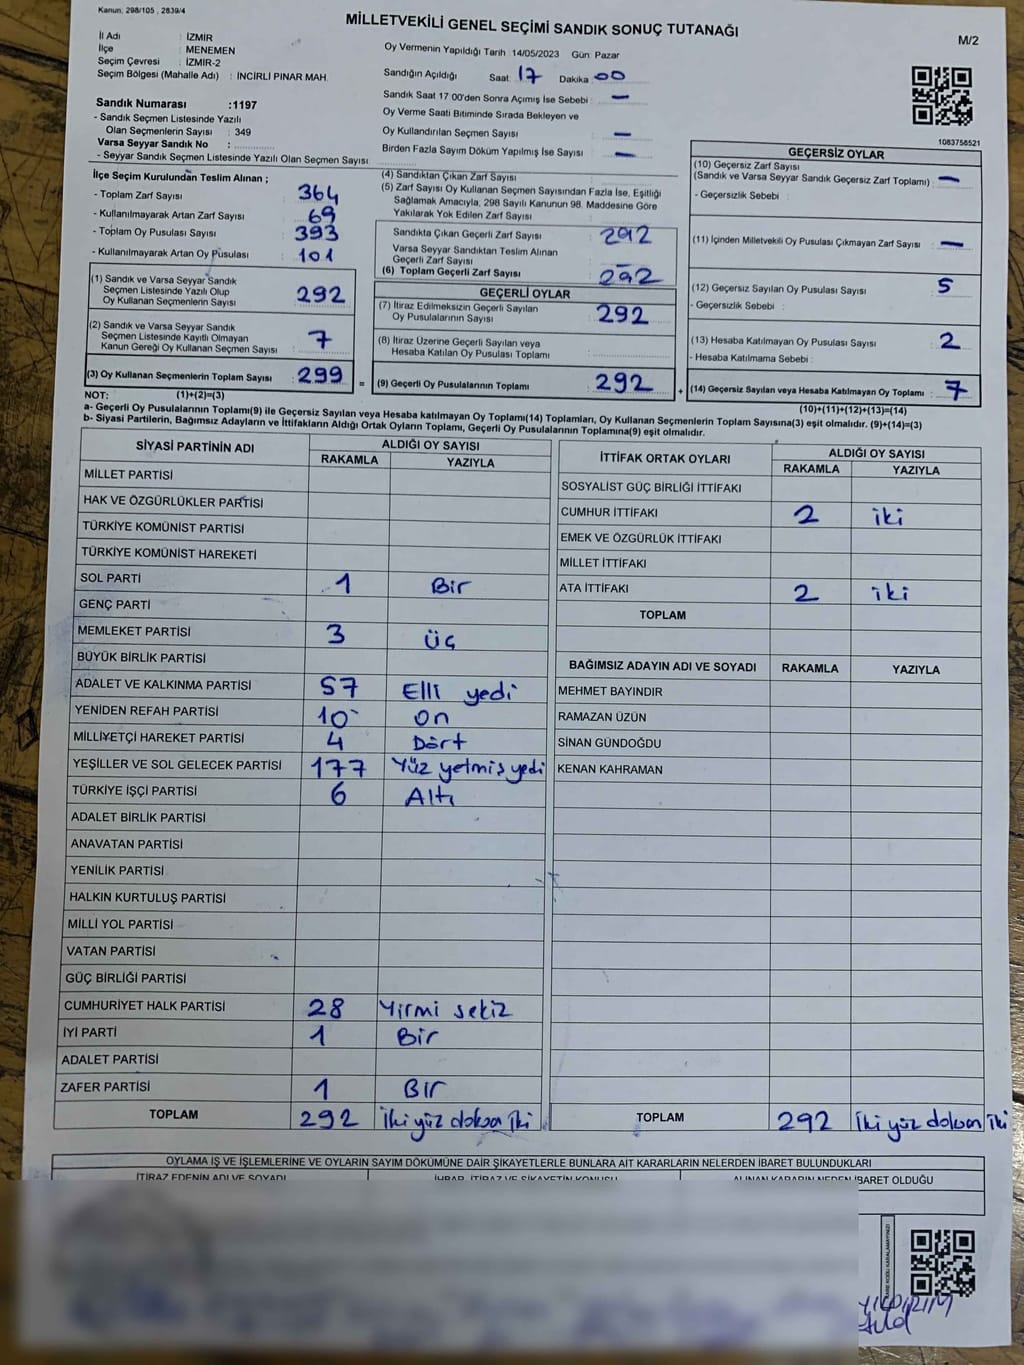 Kanun, 298/105 , 2839/4
MİLLETVEKİLİ GENEL SEÇİMİ SANDIK SONUÇ TUTANAĞI
M/2
İl Adı : İZMİR
İlçe : MENEMEN
Seçim Çevresi : İZMİR-2
Seçim Bölgesi (Mahalle Adı) : İNCİRLİ PINAR MAH.
Oy Vermenin Yapıldığı Tarih 14/05/2023 Gün: Pazar
Sandığın Açıldığı Saat: 17 Dakika 00
Sandık Saat 17 00'den Sonra Açımış İse Sebebi : —
Oy Verme Saati Bitiminde Sırada Bekleyen ve
Oy Kullandırılan Seçmen Sayısı : —
Birden Fazla Sayım Döküm Yapılmış İse Sayısı : —
Sandık Numarası :1197
- Sandık Seçmen Listesinde Yazılı
Olan Seçmenlerin Sayısı : 349
Varsa Seyyar Sandık No :
- Seyyar Sandık Seçmen Listesinde Yazılı Olan Seçmen Sayısı
1083758521
İlçe Seçim Kurulundan Teslim Alınan ;
- Toplam Zarf Sayısı : 364
- Kullanılmayarak Artan Zarf Sayısı : 69
- Toplam Oy Pusulası Sayısı : 393
- Kullanılmayarak Artan Oy Pusulası : 101
(1) Sandık ve Varsa Seyyar Sandık
Seçmen Listesinde Yazılı Olup
Oy Kullanan Seçmenlerin Sayısı : 292
(2) Sandık ve Varsa Seyyar Sandık
Seçmen Listesinde Kayıtlı Olmayan
Kanun Gereği Oy Kullanan Seçmen Sayısı : 7
(3) Oy Kullanan Seçmenlerin Toplam Sayısı : 299
(4) Sandıktan Çıkan Zarf Sayısı :
(5) Zarf Sayısı Oy Kullanan Seçmen Sayısından Fazla İse, Eşitliği
Sağlamak Amacıyla, 298 Sayılı Kanunun 98. Maddesine Göre
Yakılarak Yok Edilen Zarf Sayısı :
Sandıkta Çıkan Geçerli Zarf Sayısı : 292
Varsa Seyyar Sandıktan Teslim Alınan
Geçerli Zarf Sayısı : —
(6) Toplam Geçerli Zarf Sayısı : 292
GEÇERLİ OYLAR
(7) İtiraz Edilmeksizin Geçerli Sayılan
Oy Pusulalarının Sayısı : 292
(8) İtiraz Üzerine Geçerli Sayılan veya
Hesaba Katılan Oy Pusulası Toplamı :
= (9) Geçerli Oy Pusulalarının Toplamı : 292 +
GEÇERSİZ OYLAR
(10) Geçersiz Zarf Sayısı
(Sandık ve Varsa Seyyar Sandık Geçersiz Zarf Toplamı) : —
- Geçersizlik Sebebi :
(11) İçinden Milletvekili Oy Pusulası Çıkmayan Zarf Sayısı : —
(12) Geçersiz Sayılan Oy Pusulası Sayısı : 5
- Geçersizlik Sebebi :
(13) Hesaba Katılmayan Oy Pusulası Sayısı : 2
- Hesaba Katılmama Sebebi :
(14) Geçersiz Sayılan veya Hesaba Katılmayan Oy Toplamı : 7
NOT: (1)+(2)=(3) (10)+(11)+(12)+(13)=(14)
a- Geçerli Oy Pusulalarının Toplamı(9) ile Geçersiz Sayılan veya Hesaba katılmayan Oy Toplamı(14) Toplamları, Oy Kullanan Seçmenlerin Toplam Sayısına(3) eşit olmalıdır. (9)+(14)=(3)
b- Siyasi Partilerin, Bağımsız Adayların ve İttifakların Aldığı Ortak Oyların Toplamı, Geçerli Oy Pusulalarının Toplamına(9) eşit olmalıdır.
SİYASİ PARTİNİN ADI ALDIĞI OY SAYISI
RAKAMLA YAZIYLA
MİLLET PARTİSİ
HAK VE ÖZGÜRLÜKLER PARTİSİ
TÜRKİYE KOMÜNİST PARTİSİ
TÜRKİYE KOMÜNİST HAREKETİ
SOL PARTİ 1 Bir
GENÇ PARTİ
MEMLEKET PARTİSİ 3 üç
BÜYÜK BİRLİK PARTİSİ
ADALET VE KALKINMA PARTİSİ 57 Elli yedi
YENİDEN REFAH PARTİSİ 10 on
MİLLİYETÇİ HAREKET PARTİSİ 4 Dört
YEŞİLLER VE SOL GELECEK PARTİSİ 177 Yüz yetmiş yedi
TÜRKİYE İŞÇİ PARTİSİ 6 Altı
ADALET BİRLİK PARTİSİ
ANAVATAN PARTİSİ
YENİLİK PARTİSİ
HALKIN KURTULUŞ PARTİSİ
MİLLİ YOL PARTİSİ
VATAN PARTİSİ
GÜÇ BİRLİĞİ PARTİSİ
CUMHURİYET HALK PARTİSİ 28 Yirmi sekiz
İYİ PARTİ 1 Bir
ADALET PARTİSİ
ZAFER PARTİSİ 1 Bir
TOPLAM 292 İki yüz doksan iki
İTTİFAK ORTAK OYLARI ALDIĞI OY SAYISI
RAKAMLA YAZIYLA
SOSYALİST GÜÇ BİRLİĞİ İTTİFAKI
CUMHUR İTTİFAKI 2 iki
EMEK VE ÖZGÜRLÜK İTTİFAKI
MİLLET İTTİFAKI
ATA İTTİFAKI 2 iki
TOPLAM
BAĞIMSIZ ADAYIN ADI VE SOYADI RAKAMLA YAZIYLA
MEHMET BAYINDIR
RAMAZAN ÜZÜN
SİNAN GÜNDOĞDU
KENAN KAHRAMAN
TOPLAM 292 İki yüz doksan iki
OYLAMA İŞ VE İŞLEMLERİNE VE OYLARIN SAYIM DÖKÜMÜNE DAİR ŞİKAYETLERLE BUNLARA AİT KARARLARIN NELERDEN İBARET BULUNDUKLARI
İTİRAZ EDENİN ADI VE SOYADI İHBAR, İTİRAZ VE ŞİKAYETİN KONUSU ALINAN KARARIN NEDEN İBARET OLDUĞU
YILDIRIM